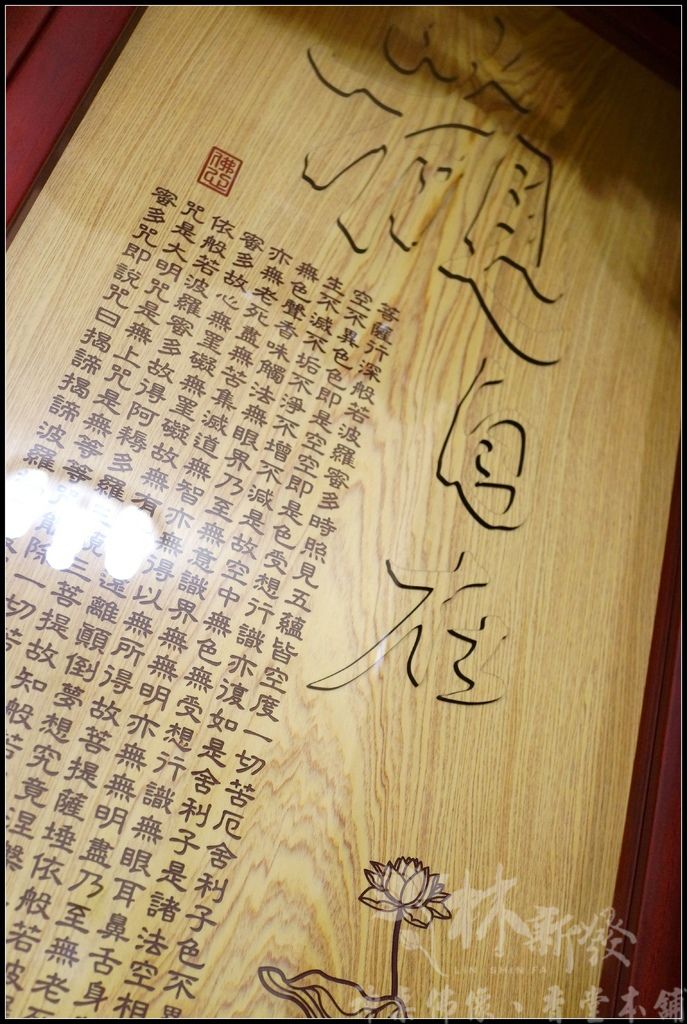 觀自在
菩薩行深般若波羅蜜多時照見五蘊皆空度一切苦厄舍利子色不異
空不異色色即是空空即是色受想行識亦復如是舍利子是諸法空相
生不滅不垢不淨不增不減是故空中無色無受想行識無眼耳鼻舌身
無色聲香味觸法無眼界乃至無意識界無無明亦無無明盡乃至無老死
亦無老死盡無苦集滅道無智亦無得以無所得故菩提薩埵依般若波
蜜多故心無罣礙無罣礙故無有遠離顛倒夢想究竟涅槃
依般若波羅蜜多故得阿耨多羅三菩提故知般若
咒是大明咒是無上咒是無等等咒能除一切苦
蜜多咒即說咒曰揭諦揭諦波羅
林新發
LIN SHIN FA
佛像、香堂本舖